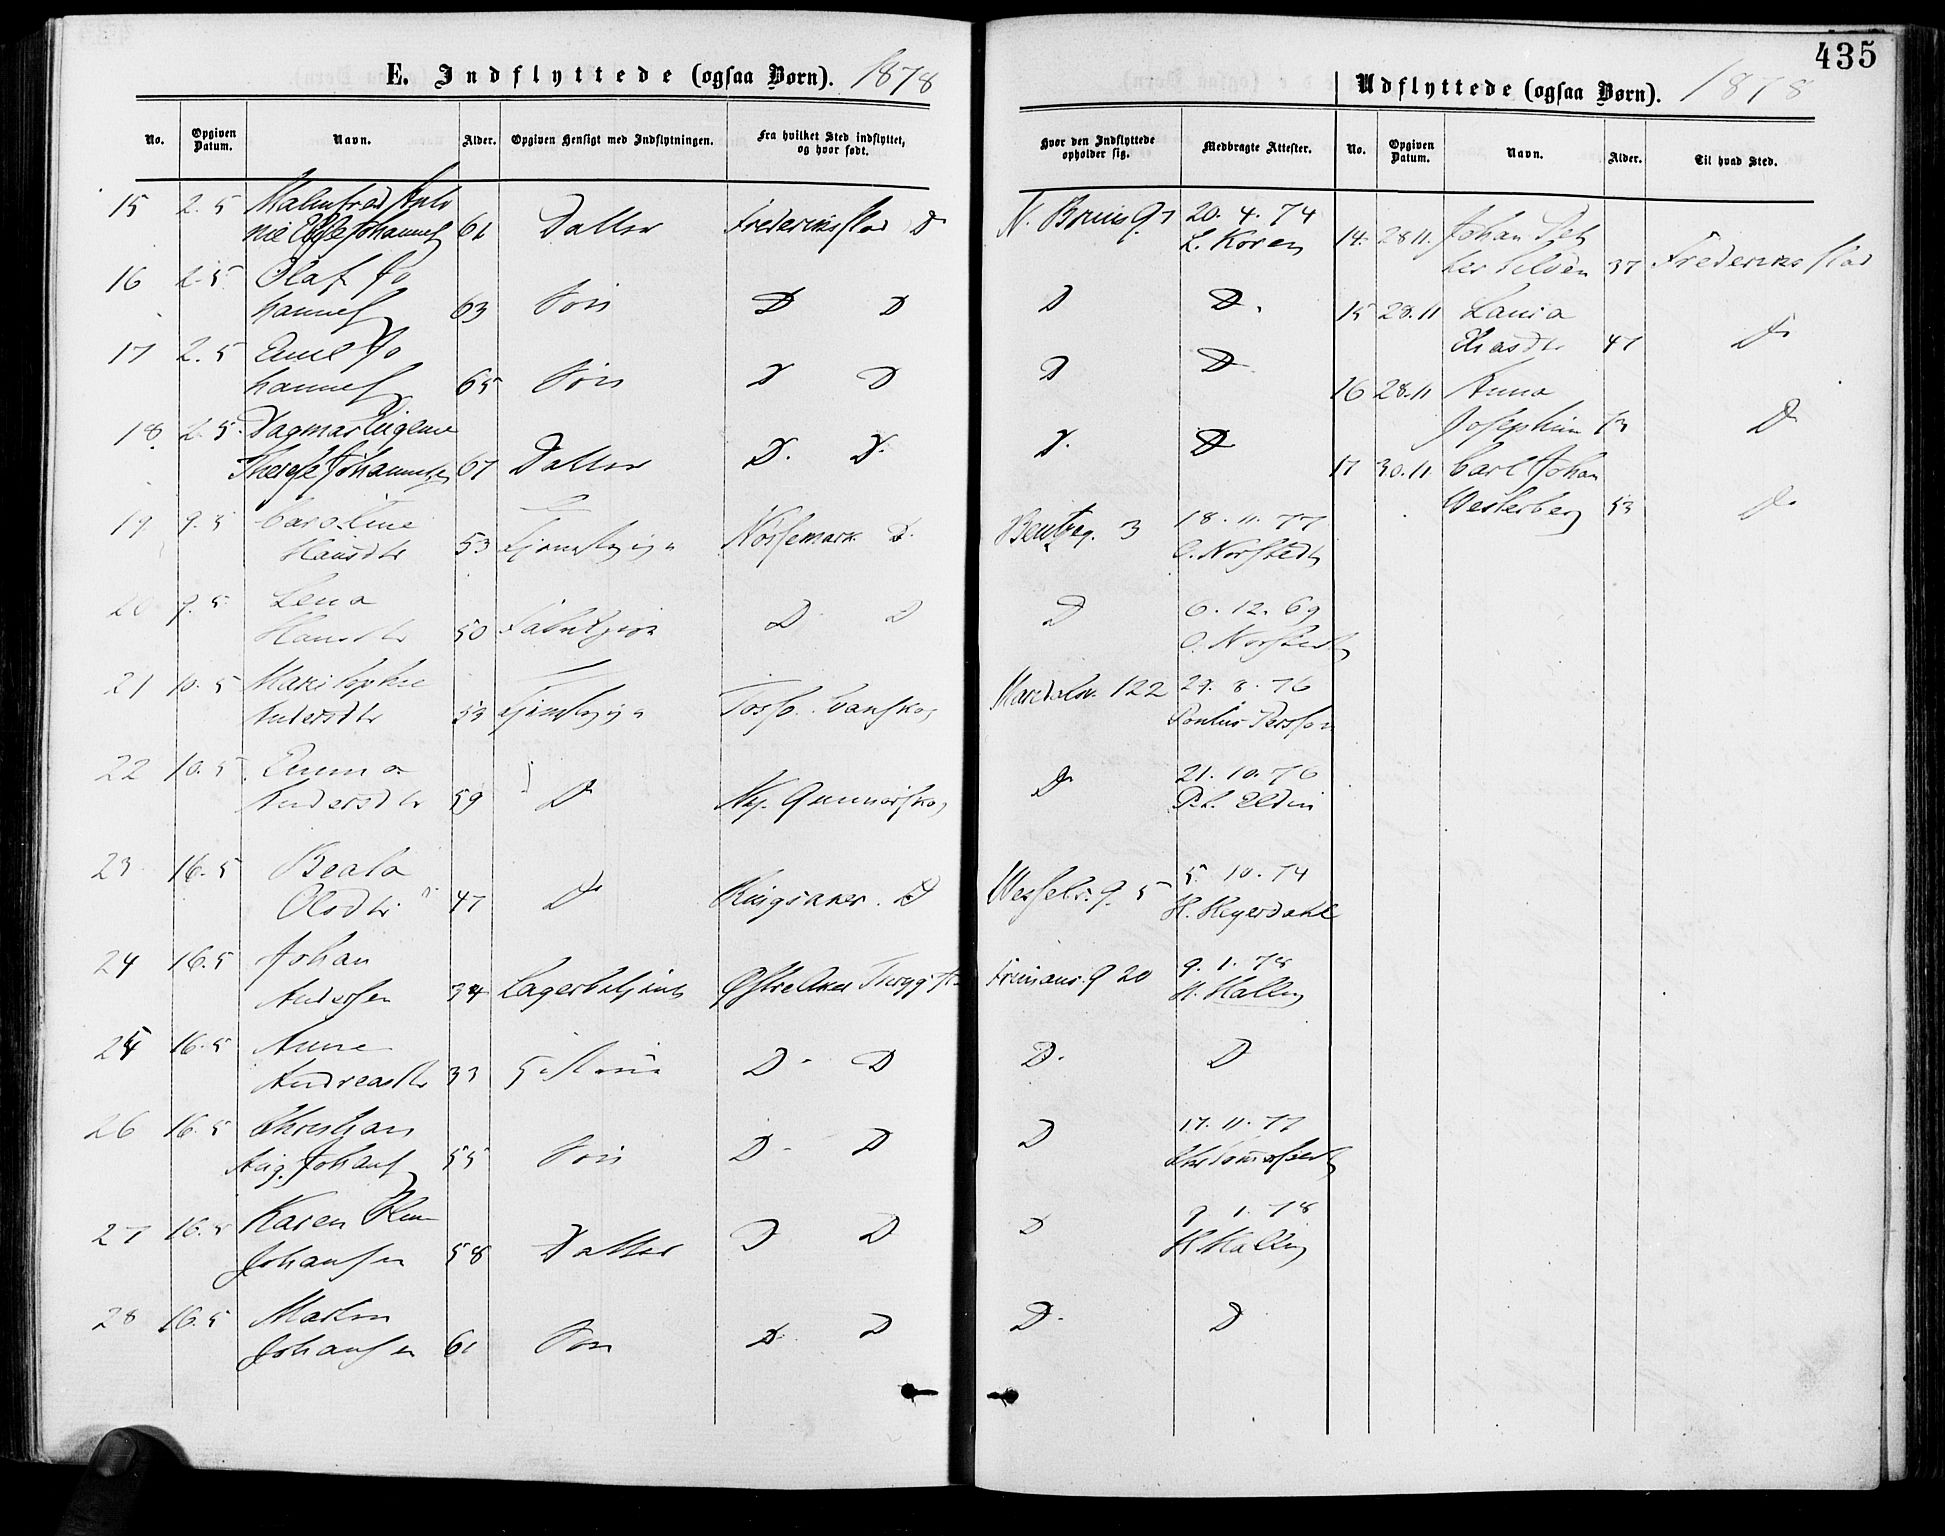 435
E. Indflyttede (ogsaa Børn). 1878
No. Opgiven Datum. Navn. Alder. Opgiven Hensigt med Indflytningen. Fra hvilket Sted indflyttet, og hvor født.
Hvor den Indflyttede opholder sig. Medbragte Attester.
15 2. 5 Malmfred
Johannes 61 Datter Frederiksstad D N. Bruns g 7 20. 4. 74
L. Koren
16 2. 5 Olaf Jo
hannes 63 Søn D D D D.
17 2. 5 Emil Jo
hannes 65 Søn D D D D
18 2. 5. Dagmar Eugenie
Therese Johannesen 67 Datter D. D. D. D
19 9. 5 Caroline
Hansdtr 53 Nössemark D. 3 18. 11. 77
O. Norstedt
20 9. 5. Lena
Hansdtr 50 D D D 6. 12. 69
O. Norstedt
21 10. 5 Mari Sophie
Andersdtr 53 Maridalsv. 122 29. 8. 76
Pontus Persson
22 10. 5. Emma
Andersdtr 59 D Ny. Gunnarskog D 21. 10. 76
Eldin
23 16. 5 Beata
Olsdtr 47 D Ringsaker. D Wessels. g. 5 5. 10. 74
H. Heyerdahl
24 16. 5 Johan
Andersen 34 Lagerbetjent Østre Aker g 20 9. 1. 78
H. Halling
25 16. 5 Anne
Andreasdtr 33 D D D. D
26 16. 5 Christian
Aug. Johans 55 Søn D D D 17. 11. 77
27 16. 5 Karen
Johansen 58 Datter D D D 9. 1. 78
H Halling
28 16. 5 Martin
Johansen 61 Søn D. D D. D
Udflyttede (ogsaa Børn). 1878
No. Opgiven Datum. Navn. Alder. Til hvad Sted.
14. 28 11. Johan Pet
ter 37 Frederiksstad
15 28. 11 47 D
16 28. 11 Anna
Josephine 73 D
17 30. 11. Carl Johan
Westerberg 53 D